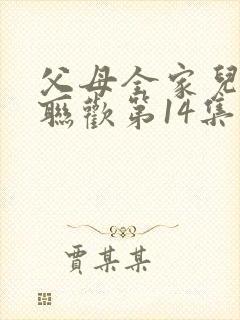 父母全家兒
聯歡第14集
賈某某